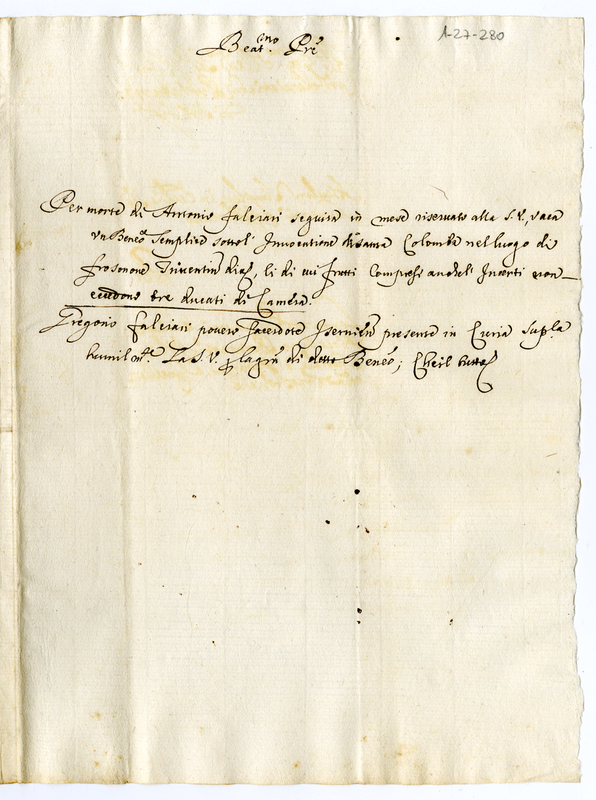 1-27-280
Beat.mo Pre
Per morte di Antonio falciari seguita in mese riservato alla S.V., vaca
un Beneo semplice sotto l'Invocatione di santa Colomba nel luogo di
frosonone Triventin dioc, li di cui frutti compresi anche l'Incerti non
eccedono tre ducati di Camera.
Gregorio falciari povero sacerdote Isernien presente in Curia supl.a
humil.mte La S.V. p la gra di detto Beneo; Che il tutto